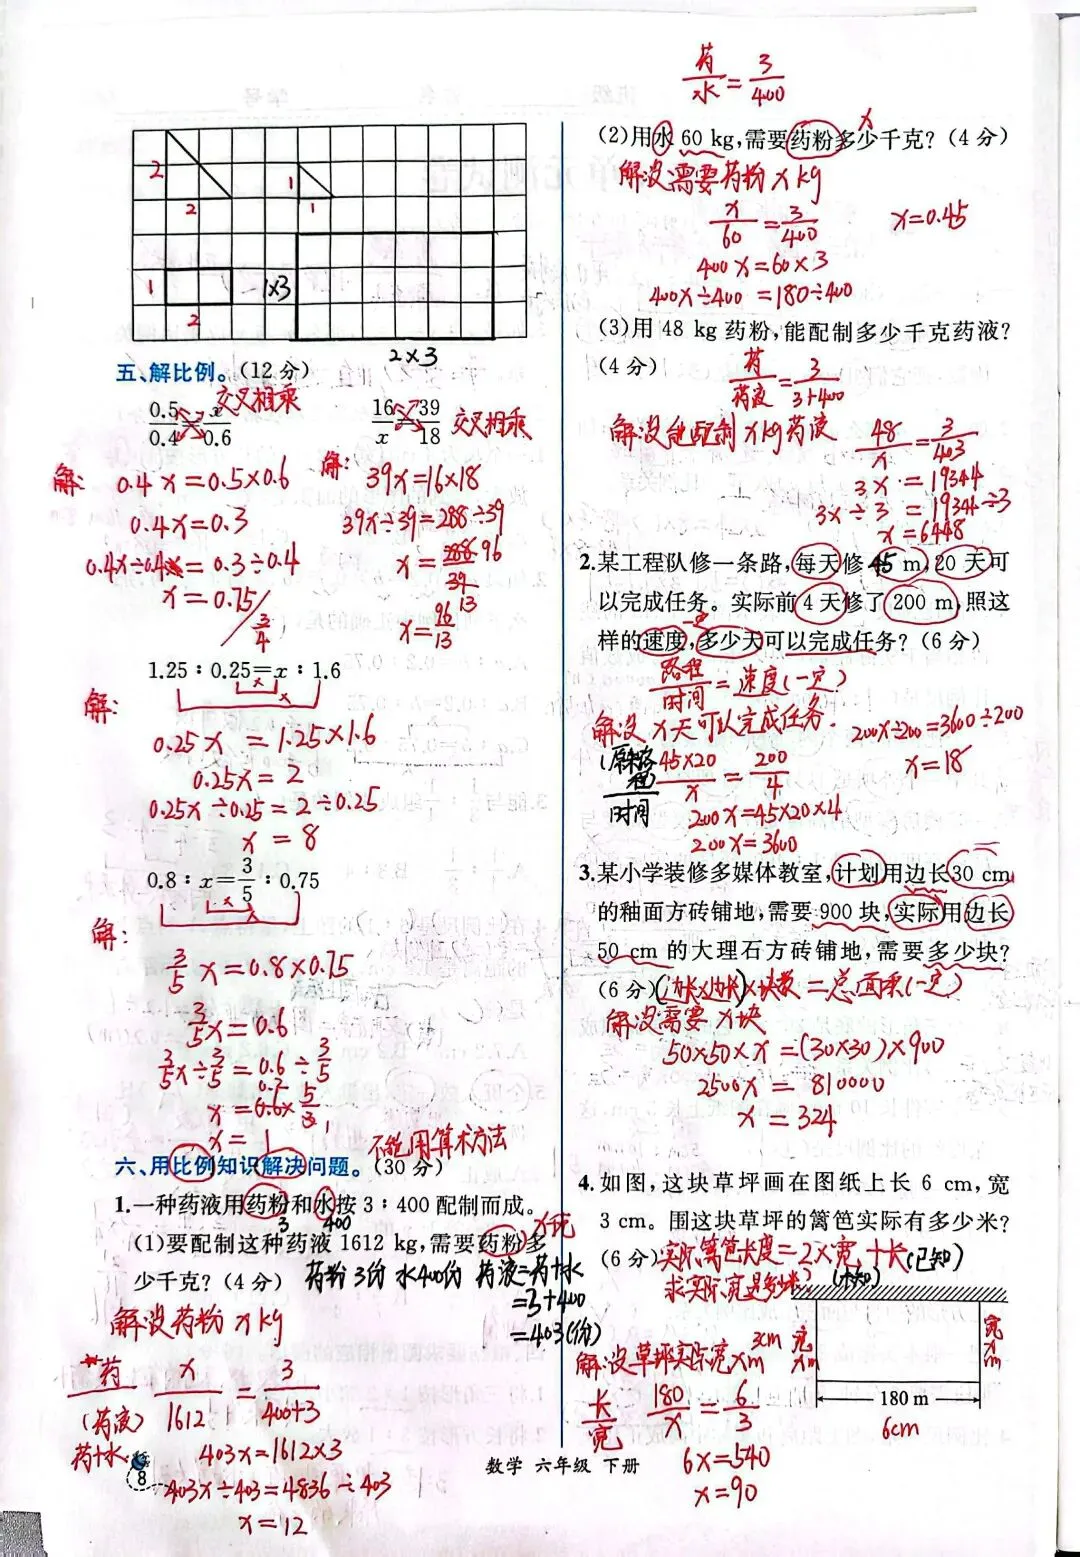 2
2
1
1
1
2
1×3
2×3
五、解比例。(12分)
0.5/0.4 = x/0.6
交叉相乘
16/x = 39/18
交叉相乘
解:
0.4x=0.5×0.6
0.4x=0.3
0.4x÷0.4=0.3÷0.4
x=0.75
3/4
解:
39x=16×18
39x÷39=288÷39
x=288/39
96
13
x=96/13
1.25:0.25=x:1.6
解:
0.25x=1.25×1.6
0.25x=2
0.25x÷0.25=2÷0.25
x=8
0.8:x=3/5:0.75
解:
3/5x=0.8×0.75
3/5x=0.6
3/5x÷3/5=0.6÷3/5
x=0.6×5/3
0.2
1
x=1
不能用算术方法
六、用比例知识解决问题。(30分)
1.一种药液用药粉和水按3:400配制而成。
3 400
x千克
(1)要配制这种药液1612 kg,需要药粉多
少千克?(4分)
药粉3份 水400份 药液=药+水
=3+400
=403(份)
解设药粉xkg
药
(药液)
药+水
x/1612=3/(400+3)
403x=1612×3
403x÷403=4836÷403
x=12
8
数学 六年级 下册
药/水=3/400
x
(2)用水60 kg,需要药粉多少千克?(4分)
解设需要药粉xkg
x/60=3/400
400x=60×3
400x÷400=180÷400
x=0.45
(3)用48 kg药粉,能配制多少千克药液?
(4分)
药/药液=3/(3+400)
解设能配制xkg药液
48/x=3/403
3x=19344
3x÷3=19344÷3
x=6448
2.某工程队修一条路,每天修45 m,20天可
以完成任务。实际前4天修了200 m,照这
样的速度,多少天可以完成任务?(6分)
路程/时间=速度(一定)
解设x天可以完成任务.
时间
45×20/x=200/4
200x=45×20×4
200x=3600
200x÷200=3600÷200
x=18
3.某小学装修多媒体教室,计划用边长30 cm
的釉面方砖铺地,需要900块,实际用边长
50 cm的大理石方砖铺地,需要多少块?
(6分)(边长×边长)×块数=总面积(一定)
解设需要x块
50×50×x=(30×30)×900
2500x=810000
x=324
4.如图,这块草坪画在图纸上长6 cm,宽
3 cm。围这块草坪的篱笆实际有多少米?
(6分)实际篱笆长度=2×宽+长(已知)
(未知)
求实际宽是多少米?
解设草坪实际宽xm
3cm
宽xm
宽xm
180 m
6cm
长/宽
180/x=6/3
6x=540
x=90